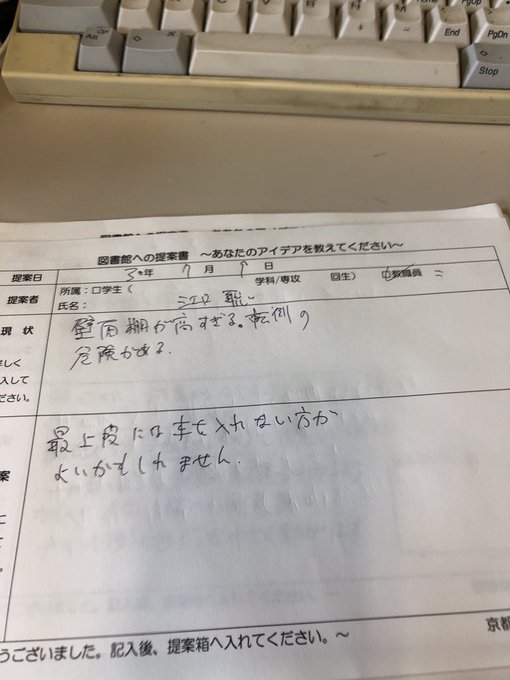 End
PgDn
Stop
図書館への提案書 ～あなたのアイデアを教えてください～
提案日 30年 7月 日
提案者 所属：□学生（ 学科/専攻 回生） □教職員
氏名：
現 状 壁面棚が高すぎる。転倒の
危険がある.
しく
入して
ださい。
案 最上段には本を入れない方が
よいかもしれません.
うございました。記入後、提案箱へ入れてください。～
京都